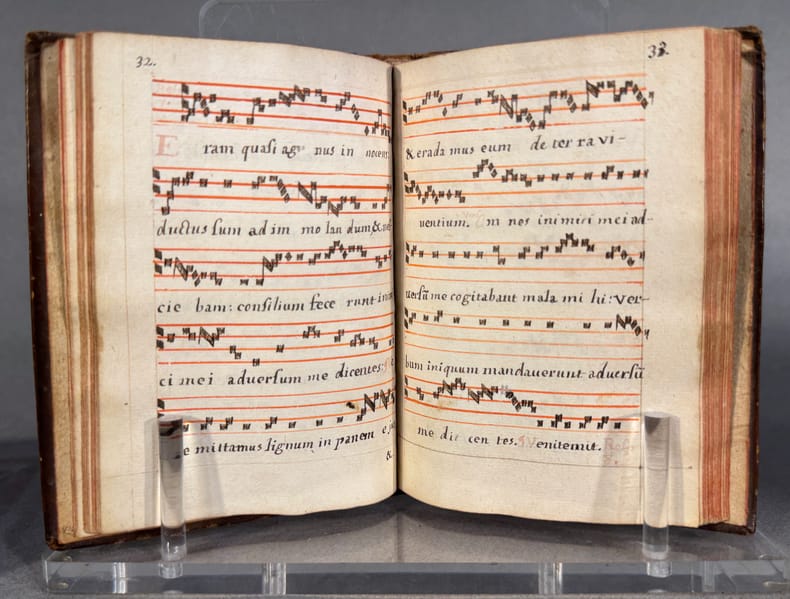 32.
E ram quasi ag nus in nocens
ductus sum ad im mo lan dum, &
cie bam: consilium fece runt inim
ci mei adversum me dicentes:
e mittamus lignum in panem e
&.
33.
& erada mus eum de ter ra vi-
ventium. m nes inimici mei ad-
versũ me cogitabant mala mi hi: ver-
bum iniquum mandaverunt adversũ
me di cen tes. V enitemit.